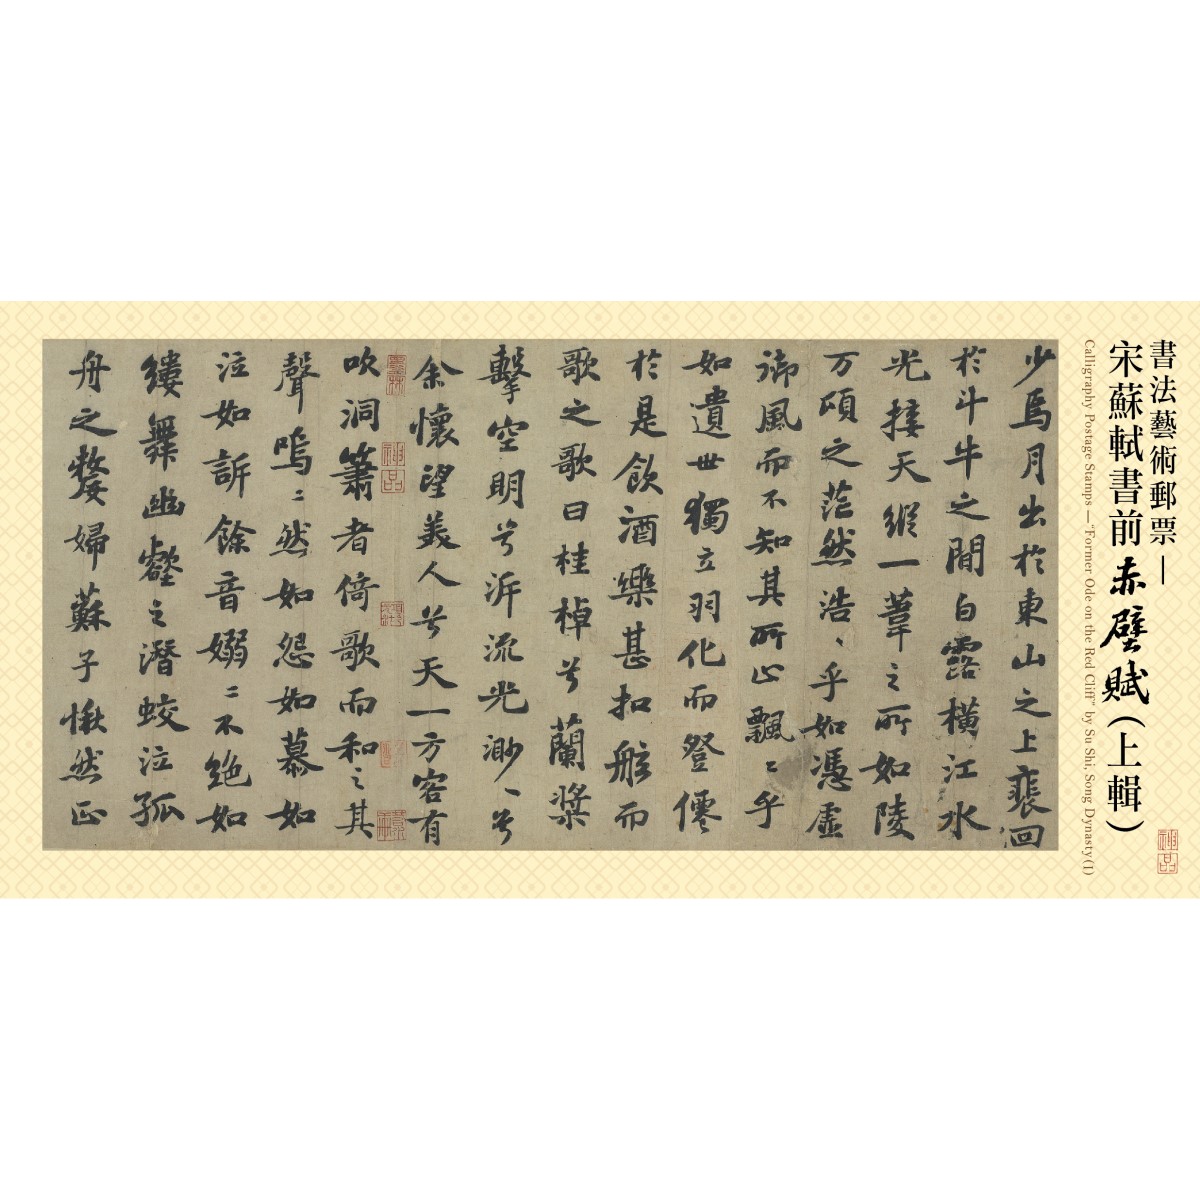 書法藝術郵票—
宋蘇軾書前赤壁賦（上輯）
神品
Calligraphy Postage Stamps — "Former Ode on the Red Cliff" by Su Shi, Song Dynasty (I)
少焉月出於東山之上裴回
於斗牛之間白露橫江水
光接天縱一葦之所如陵
万頃之茫然浩、乎如憑虛
御風而不知其所止飄〻乎
如遺世獨立羽化而登僊
於是飲酒樂甚扣舷而
歌之歌曰桂棹兮蘭槳
擊空明兮泝流光渺、兮
余懷望美人兮天一方客有
神品
吹洞簫者倚歌而和之其
聲嗚〻然如怨如慕如
泣如訴餘音嫋〻不絕如
縷舞幽壑之潛蛟泣孤
舟之嫠婦蘇子愀然正